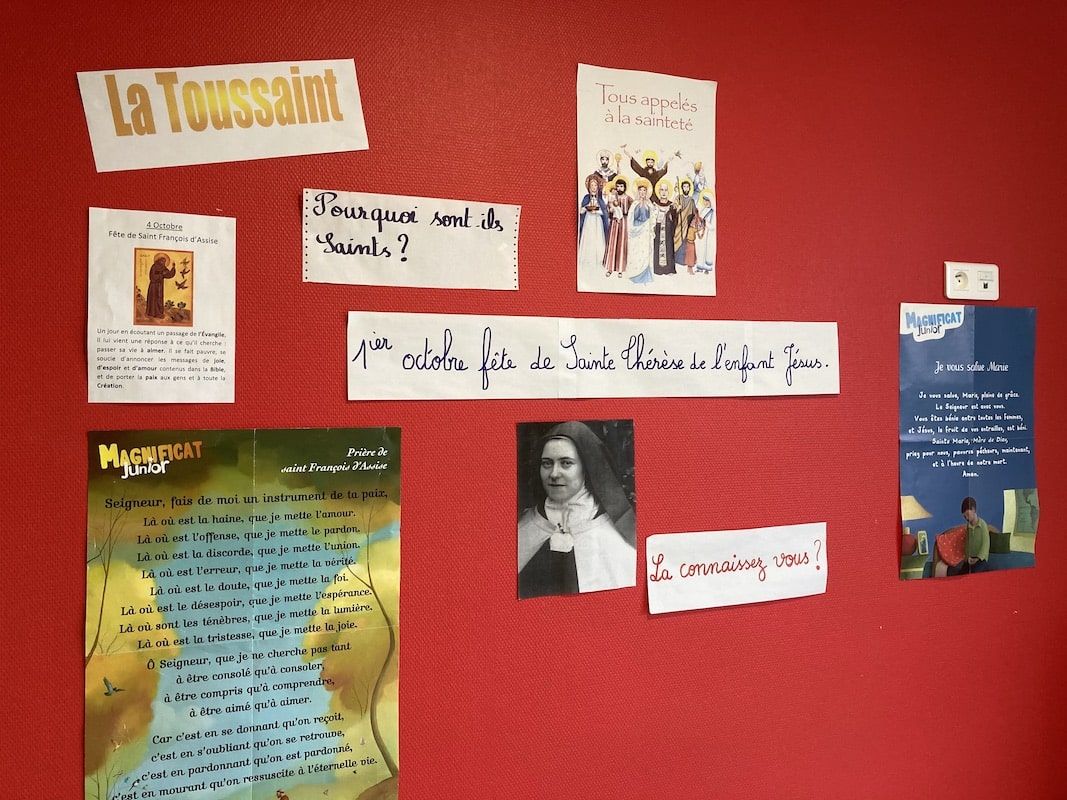 La Toussaint
Tous appelés
à la sainteté
Pourquoi sont-ils
Saints ?
4 Octobre
Fête de Saint François d'Assise
Un jour en écoutant un passage de l'Évangile,
il lui vient une réponse à ce qu'il cherche :
passer sa vie à aimer. Il se fait pauvre, se
soucie d'annoncer les messages de joie,
d'espoir et d'amour contenus dans la Bible,
et de porter la paix aux gens et à toute la
Création.
1er octobre fête de Sainte Thérèse de l'enfant Jésus.
La connaissez vous ?
MAGNIFICAT
Junior
Je vous salue Marie
Je vous salue, Marie, pleine de grâce.
Le Seigneur est avec vous.
Vous êtes bénie entre toutes les femmes,
et Jésus, le fruit de vos entrailles, est béni.
Sainte Marie, Mère de Dieu,
priez pour nous, pauvres pécheurs, maintenant,
et à l'heure de notre mort.
Amen.
MAGNIFICAT
Junior
Prière de
saint François d'Assise
Seigneur, fais de moi un instrument de ta paix,
Là où est la haine, que je mette l'amour.
Là où est l'offense, que je mette le pardon.
Là où est la discorde, que je mette l'union.
Là où est l'erreur, que je mette la vérité.
Là où est le doute, que je mette la foi.
Là où est le désespoir, que je mette l'espérance.
Là où sont les ténèbres, que je mette la lumière.
Là où est la tristesse, que je mette la joie.
Ô Seigneur, que je ne cherche pas tant
à être consolé qu'à consoler,
à être compris qu'à comprendre,
à être aimé qu'à aimer.
Car c'est en se donnant qu'on reçoit,
c'est en s'oubliant qu'on se retrouve,
c'est en pardonnant qu'on est pardonné,
c'est en mourant qu'on ressuscite à l'éternelle vie.